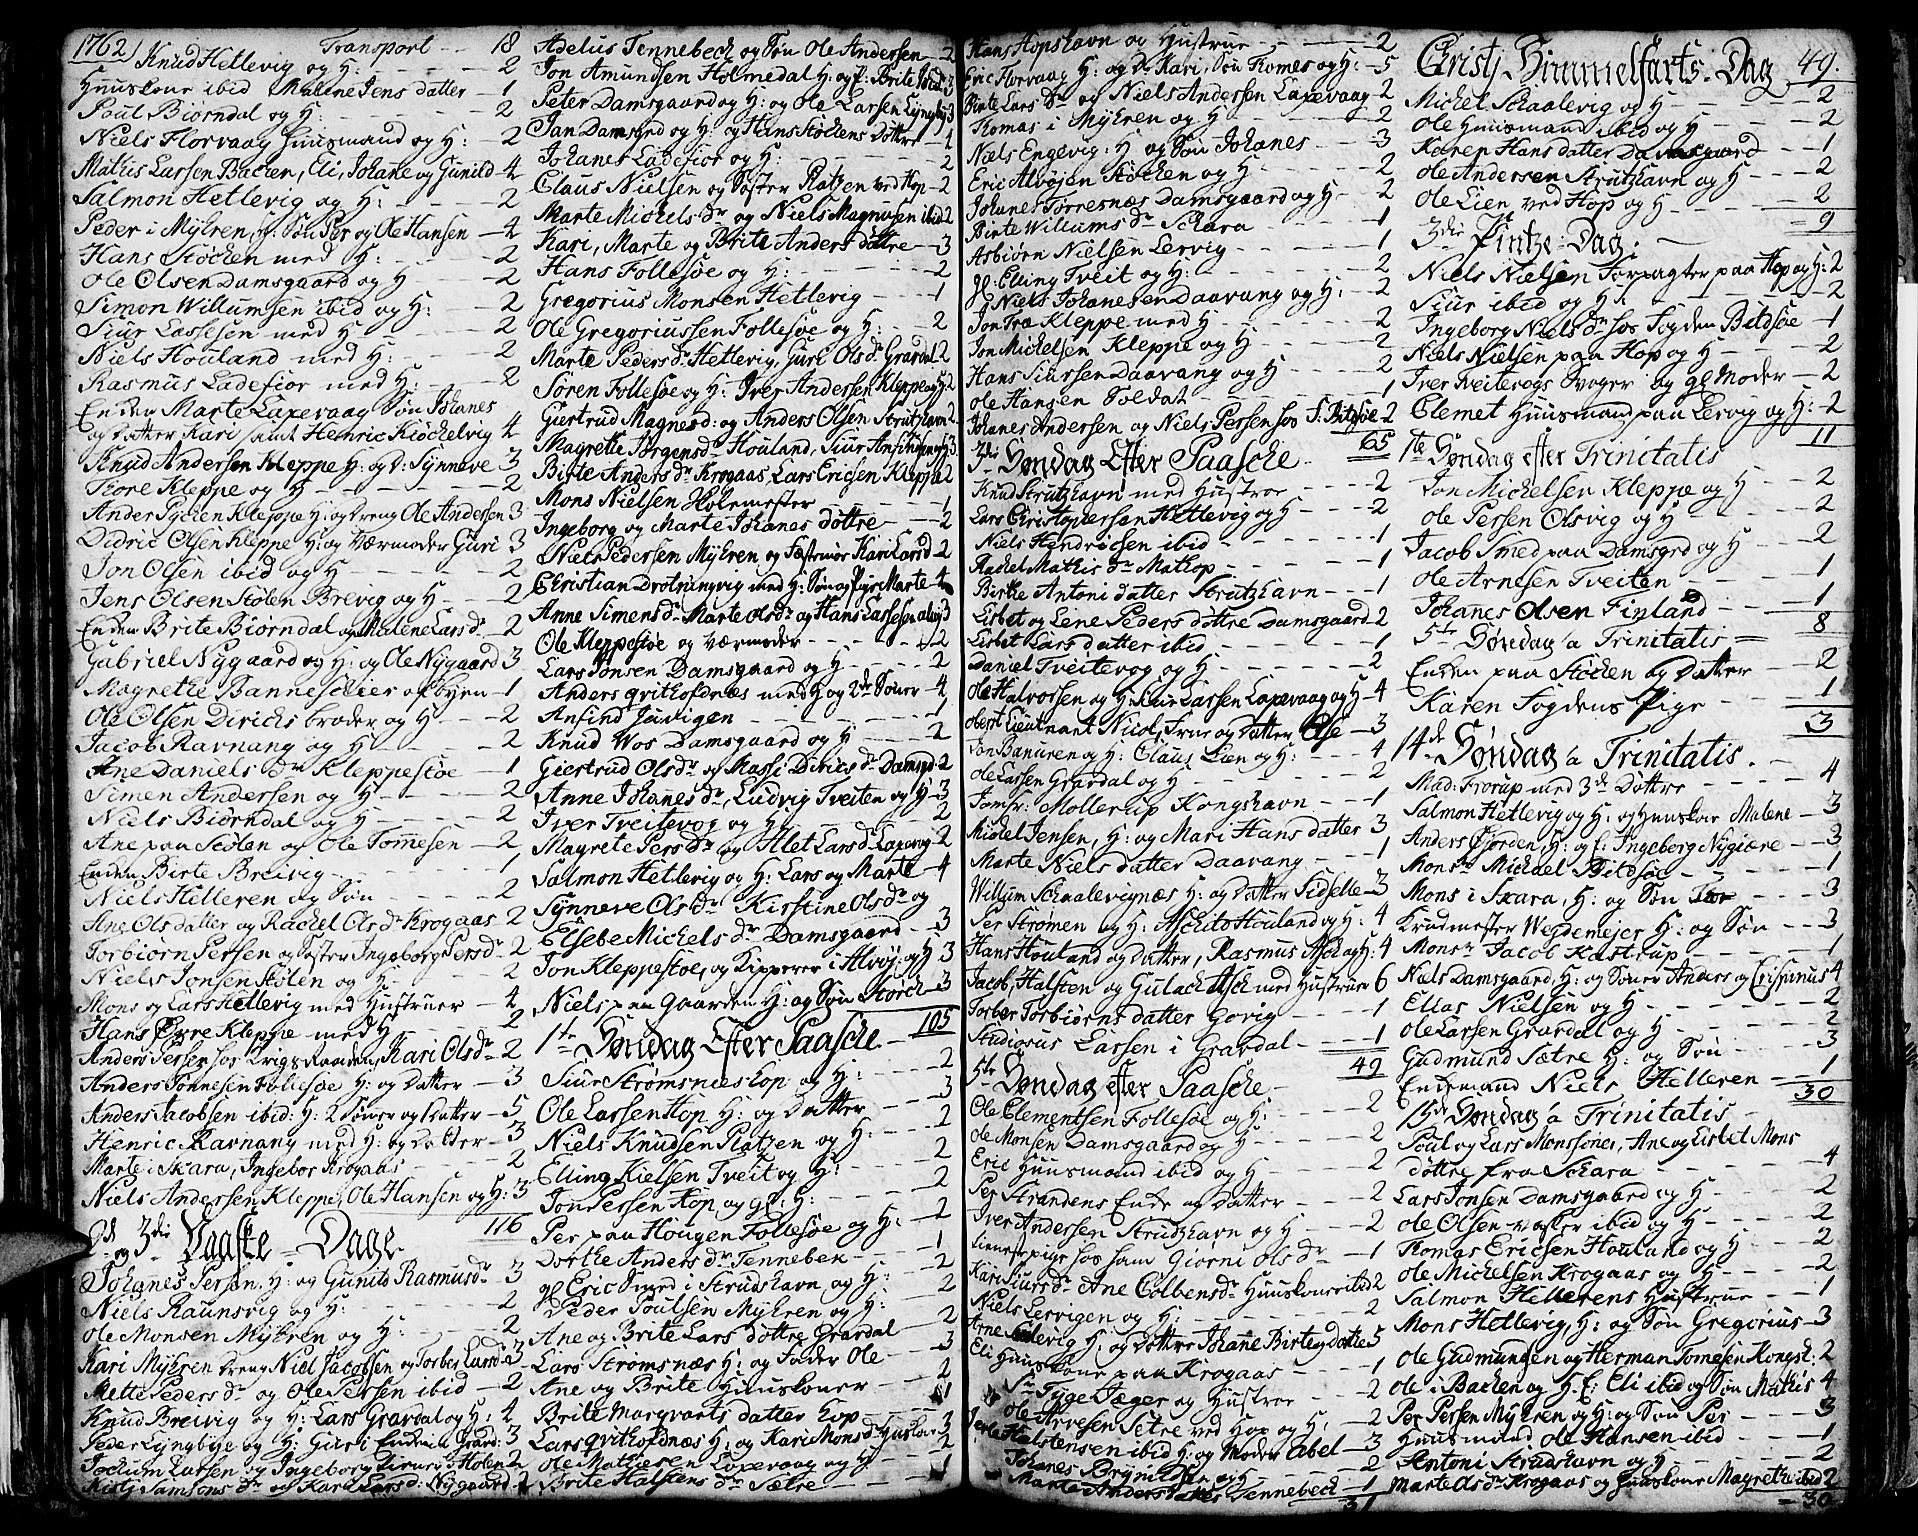 1762 Transport - - 18
Knud Hetlevig og H: - - - 2
Huuskone ibid Malene Jens datter - 1
Poul Biørndal og H: - - - 2
Niels Florvaag Huusmand og H: - 2
Mathis Larsen Backen, Eli, Johane og Gunild - 4
Salmon Hetlevig og H: - - - 2
Peder i Myhren, H: Søn Per og Ole Hansen - 4
Hans Støcken med H: - - - 2
Ole Olsen Damsgaard og H - - 2
Simon Willumsen ibid og H: - - 2
Siur Lassesen med H - - - 2
Niels Houland med H: - - - 2
Rasmus Ladefior med H: - - - 2
Enken Marte Laxevaag Søn Johanes
og Datter Kari samt Henric Kiøckelvig 4
Knud Andersen Kleppe H: og D: Synneve 3
Tore Kleppe og H - - - 2
Ander Sychen Kleppe H: og Dreng Ole Andersen 3
Didric Olsen Kleppe H: og Værmoder Guri 3
Jon Olsen ibid og H - - - 2
Jens Olsen Stølen Brevig og H. - - 2
Enken Brite Biørndal og Malene Lars dr - 2
Gabriel Nygaard og H: og Ole Nygaard 3
Magrethe Bannescheier af byen - 1
Ole Olsen Dirichs broder og H - - 2
Jacob Ravnang og H - - - 2
Ane Daniels dr Kleppestøe - - 1
Simen Andersen og H - - - 2
Niels Biørndal og H - - - 2
Ane paa Stølen og Ole Tommesen - 2
Enken Birte Breivig - - - 1
Niels Helleren og Søn - - - 2
Ane Olsdatter og Rachel Ols dr Krogaas 2
Torbiørn Persen og Søster Ingeborg Pers dr - 2
Niels Jonsen Stølen og H - - 2
Mons og Lars Hetlevig med Hustruer - 4
Hans Øvre Kleppe med H - - 2
Anders Persen hos Krigs Raaden, Kari Ols dr - 2
Anders Tonnesen Follesøe H: og Datter - 3
Anders Jacobsen ibid: H: 2 Sønner og Datter - 5
Henric Ravnang med H: og Datter - 3
Marte i Skara, Ingebor Krogaas - - 2
Niels Andersen Kleppe, Ole Hansen og H: 3
116
2den og 3die Paaske - Dage
Johanes Persen, H: og Gunild Rasmus dr 3
Niels Raunsvig og H: - - - 2
Ole Monsen Myhren og H: - - - 2
Kari Myhren dreng Niel Jacobsen og Torbes Lars dr - 3
Mette Peders dr og Ole Persen ibid - 2
Knud Breivig og H: Lars Grardal og H: 4
Peder Lyngbye og H: Guri Enken i Grard: 3
Jochum Larsen og Ingeborg Holen 2
Kisti Samsons dr og Kari Lars d. Nygaard - 2
Adelus Tennebeck og Søn Ole Andersen - 2
Jon Amundsen Holmedal H: og f: Brite 3
Peter Damsgaard og H: og Ole Larsen Lyngby 3
Jan Damsgrd og H: og Hans Støckens Døttre - 4
Johanes Ladefior og H: - - - 2
Claus Nielsen og Søster Platzen ved Hop - 2
Marte Michels dr og Niels Magnusen ibid 2
Kari, Marte og Brite Anders døttre - 3
Hans Follesøe og H: - - - 2
Gregorius Monsen Hetlevig - - 1
Ole Gregoriussen Follesøe og H: - 2
Marte Peders dr Hetlevig, Guri Ols dr Grardal 2
Søren Follesøe og H: Iver Andersen Kleppe og H 2
Giertrud Magnes d: og Anders Olsen Strutzhavn 2
Magrette Jørgens dr Houland, Siur Anfindsen H: 3
Birte Anders dr Krogaas, Lars Ericsen Kleppe 2
Mons Nielsen Holemester - - 1
Ingeborg og Marte Johanes døttre - - 2
Niels Pedersen Myhren og Fæstemøe Kari Lars d - 2
Christian Drotningvig med H: Søn og Pige Marte - 4
Anne Simens dr Marte Ols dr og Hans Lassesen 3
Ole Kleppestøe og Værmoder - - - 2
Lars Jonsen Damsgaard og H - - 2
Anders Qvithofdnæs med H og 2de Sønner - 4
Anfind Juvigen - - - 1
Knud Wos Damsgaard og H - - - 2
Giertrud Ols dr og Massi Dirics dr Damsgrd - 2
Anne Johanes dr, Ludvig Tveiten og H - 3
Iver Tveitevog og H - - - 2
Magrete Pers dr og Illet Lars d Laxevog - 2
Salmon Hetlevig og H: Lars og Marte - 4
Synneve Ols dr Kirstine Ols dr og
Elsebe Michels dr Damsgaard - - 3
Jon Kleppestøe, og Kipperen i Alvøy og H 3
Niels paa Gaarden H: og Søn Størch - 3
105
1te Søndag Efter Paasche - -
Siur Strømsnæs hop og H: - - 2
Ole Larsen Hop H: og Datter - - 3
Niels Knudsen Platzen og H: - - 2
Elling Kielsen Tveit og H: - - 2
Jon Persen Hop og gl: H: - - - 2
Per paa Hougen Follesøe og H: - 2
Dorthe Anders dr Tennebek - - - 1
gl Eric Smed i Strudshavn og H: - - 2
Peder Poulsen Myhren og H: - - 2
Ane og Brite Lars døttre Grardal - - 2
Lars Strømsnæs H: og Fader Ole - - 3
Ane og Brite Huuskoner - - - 2
Brite Marqvarts datter Hop - - - 1
Lars Qvithofdnæs H: og Kari Mons dr Huskone 3
Ole Mathiesen Laxevaag og H: - - 2
Brite Halstens dr Sætre - - - 1
Hans Hopshavn og Hustrue - - - 2
Eric Florvaag H: og Dr Kari, Søn Thomes og H: - 5
Birte Lars Dr og Niels Andersen Laxevaag - 2
Thomas i Myhren og H - - - 2
Niels Engevig: H og Søn Johanes - - - 3
Eric Alvøjen Støchen og H - - - 2
Johanes Torresnæs Damsgaard og H - - 2
Birte Willums dr Schara - - - 1
Asbiørn Nielsen Lervig - - - 1
gl: Elling Tveit og H: - - - 2
Niels Johanesen Daavang og H: - - 2
Jon Træ Kleppe med H - - - 2
Jon Michelsen Kleppe og H - - - 2
Hans Siursen Daavang og H - - - 2
Ole Hansen Soldat - - - 1
Johanes Andersen og Niels Persen hos F. Bildsøe - 2
65
3die Søndag Efter Paasche -
Knud Strutzhavn med Hustroe - - 2
Lars Christophersen Hetlevig og H - - 2
Niels Hendricsen ibid - - - 1
Rachel Mathis dr Mathop - - - 1
Birthe Antoni datter Strutzhavn - - 1
Lisbet og Lene Peders døttre Damsgaard 2
Lisbet Lars datter ibid - - - 1
Daniel Tveitevog og H - - - 2
Ole Halvorsen og H: Siur Larsen Laxevaag og H - 4
Oberst Lieutnant Nicol, Frue og Datter Else - 3
Jon Banuren og H: Claus Lien og H: - 4
Ole Larsen Grardal og H - - - 2
Jomfr: Mollerup Kongshavn - - - 1
Michel Jensen, H: og Mari Hans datter 3
Marte Niels datter Daavang - - - 1
Willum Schaalevignæs H: og Datter Sidselle - 3
Per Strømen og H: Aschild Houland og H: 4
Hans Houland og Datter, Rasmus Ask og H: 4
Jacob, Halsten og Gulach Asch med Hustruer 6
Torber Torbiørns datter Govig - - - 1
Studiosus Larsen i Grardal - - - 1
49
5te Søndag efter Paasche -
Ole Clementsen Follesøe og H: - - 2
Ole Monsen Damsgaard og H - - - 2
Eric Huusmand ibid og H - - - 2
Per Strandens Enke og Datter - - - 2
Iver Andersen Strutzhavn og H - - 2
pige hos ham Giørni Ols dr - 1
Kari Siurs dr Ane Colbens dr Huuskoner ibid 2
Niels Lervigen og H: - - - 2
Arne H: og Døttre Johane Birte 5
Eli Huuskone paa Krogaas - - - 1
Sr Tyge Jæger og Hustroe - - - 2
Ole Arnesen Sætre ved Hop og H: - - 2
Halstensen ibid H: og Moder Abel - 3
Johanes Brynildsen og H - - - 2
Marte Anders datter Tennebeck - 1
31
Christj Himmelfarts - Dag 49.
Michel Schaalevig og H - - - 2
Ole Huusmand ibid og H - - - 2
Karen Hans datter Damsgaard - - 1
Ole Andersen Strutzhavn og H - - 2
Ole Lien ved Hop og H - - - 2
9
3die Pintze - Dag. -
Niels Nielsen Forpagter paa Hop og H: 2
Siur ibid og H: - - - 2
Ingeborg Niels dr hos Fogden Bildsøe - 1
Niels Nielsen paa Hop og H - - - 2
Iver Tveitevogs Svoger og gl Moder - - 2
Clemet Huusmand paa Lervig og H: - 2
11
1te Søndag efter Trinitatis
Jon Michelsen Kleppe og H - - - 2
Ole Persen Olsvig og H - - - 2
Jacob Smed paa Damsgrd og H - - 2
Ole Arnesen Tveiten - - - 1
Johanes Olsen Finland - - - 1
8
5te Søndag a Trinitatis -
Enken paa Støchen og Datter 2
Karen Fogdens Pige - - 1
3
14de Søndag a Trinitatis.
Mad: Frorup med 3de Døttre - - - 4
Salmon Hetlevig og H: og Huuskone Malene - 3
Anders Fjorden H: og f: Ingeborg Nygiære - 3
Monsr Michael Bildsøe - - - 1
Mons i Skara, H: og Søn Iver - - 3
Krudmester Weydemejer H: og Søn - - 3
Monsr Jacob Kastrup - - - 1
Niels Damsgaard, H: og Sønner Anders og Crispinus 4
Ellas Nielsen og H - - - 2
Ole Larsen Grardal og H - - - 2
Gudmund Sætre H: og Søn - - - 3
Enkemand Niels Helleren - - - 1
30
15de Søndag a Trinitatis -
Poul og Lars Monssøner, Ane og Lisbet Mons
døttre fra Schara - - - 4
Lars Jonsen Damsgaard og H - - - 2
Ole Olsen vogter ibid og H - - - 2
Thomas Ericsen Houland og H - - 2
Ole Michelsen Krogaas og H - - - 2
Salmon Hellerens Hustrue - - - 1
Mons Hetlevig, H: og Søn Gregorius - 3
Ole Gudmunsen og Herman Tomesen Kongsh: 2
Ole i Bachen og H. f: Eli ibid og Søn Mathis 4
Per Persen Myhren og H: og Søn Per - - 3
Huusmand Ole Hansen ibid - - - 1
Antoni Strudshavn og H - - - 2
Marte Ols dr Krogaas og Huuskone Magrethe ibid 2
30